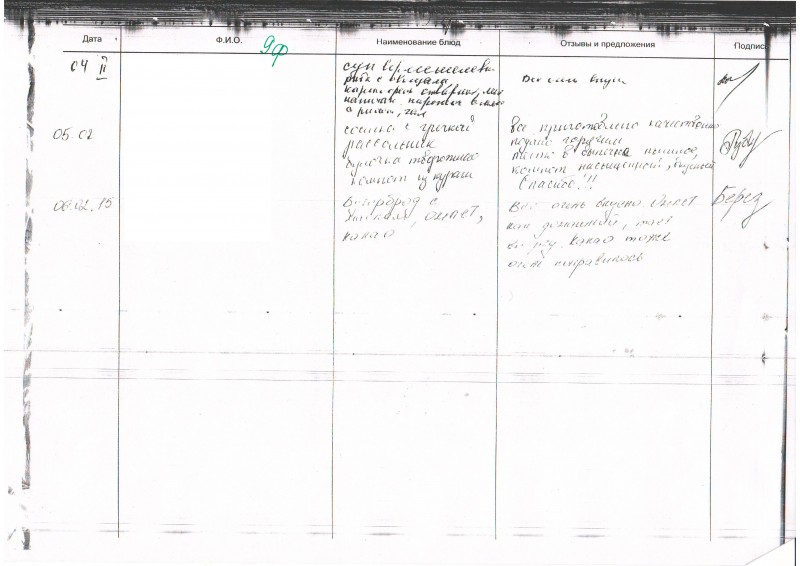 Дата Ф.И.О. Наименование блюд Отзывы и предложения Подпись
9ф
04 II
суп вермишелевый
рыба с
картофель отварной,
напиток
с рисом, чай
Все было вкусно
05.02
сосиска с гречкой
рассольник
булочка творожная
компот из кураги
Все приготовлено качественно
подано горячим
тесто в выпечке пышное,
компот насыщенный, вкусный
Спасибо!!!
Рубу
06.02.15
Бутерброд с
маслом, омлет,
какао
Всё очень вкусно. Омлет
как домашний, тает
во рту. Какао тоже
очень понравилось
Берез